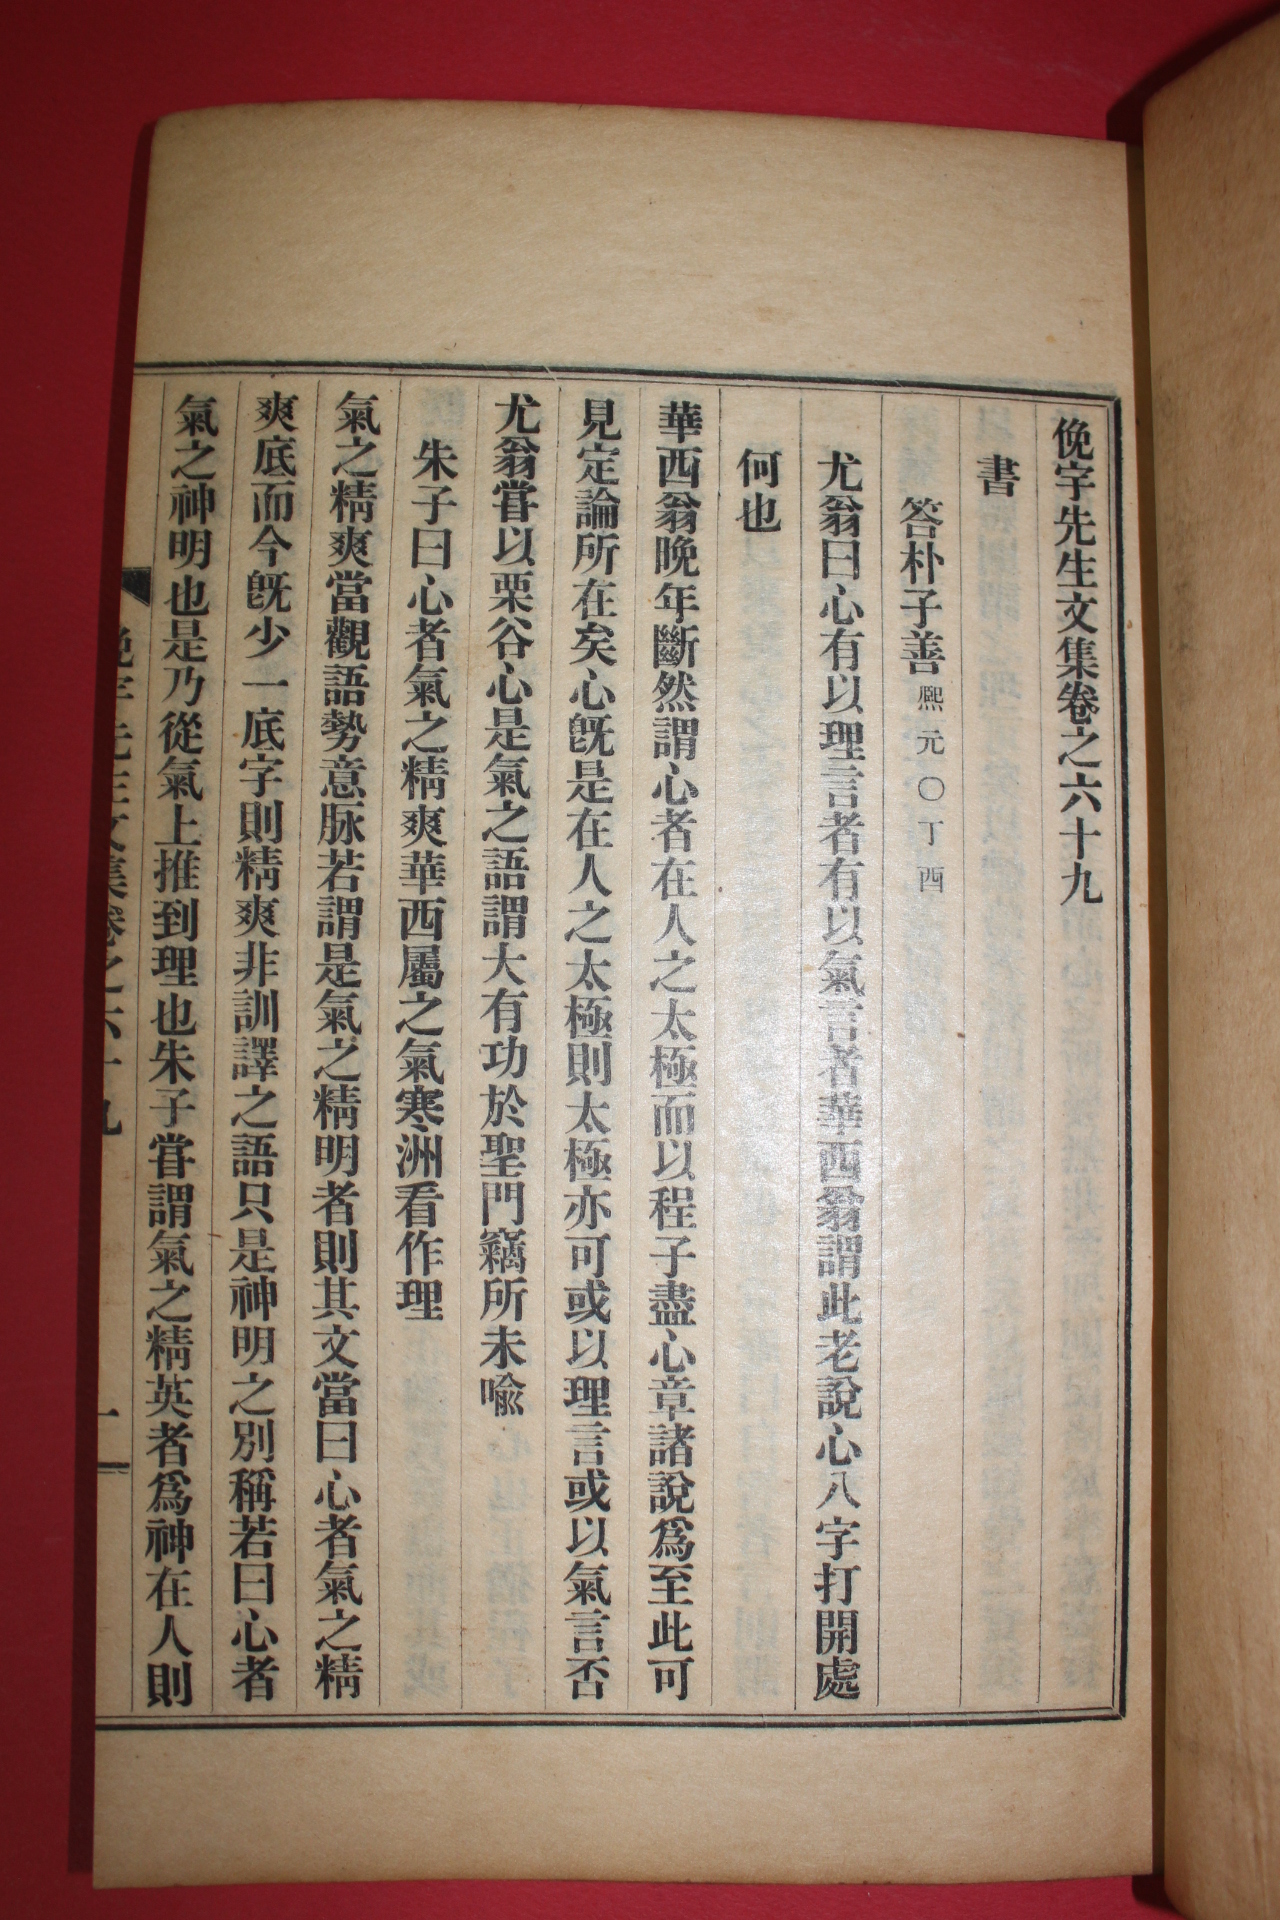 俛宇先生文集卷之六十九
書
答朴子善熈元○丁酉
尤翁曰心有以理言者有以氣言者華西翁謂此老說心八字打開處
何也
華西翁晩年斷然謂心者在人之太極而以程子盡心章諸說爲至此可
見定論所在矣心旣是在人之太極則太極亦可或以理言或以氣言否
尤翁甞以栗谷心是氣之語謂大有功於聖門竊所未喩
朱子曰心者氣之精爽華西屬之氣寒洲看作理
氣之精爽當觀語勢意脉若謂是氣之精明者則其文當曰心者氣之精
爽底而今旣少一底字則精爽非訓譯之語只是神明之別稱若曰心者
氣之神明也是乃從氣上推到理也朱子甞謂氣之精英者爲神在人則
俛宇先生文集卷之六十九
一